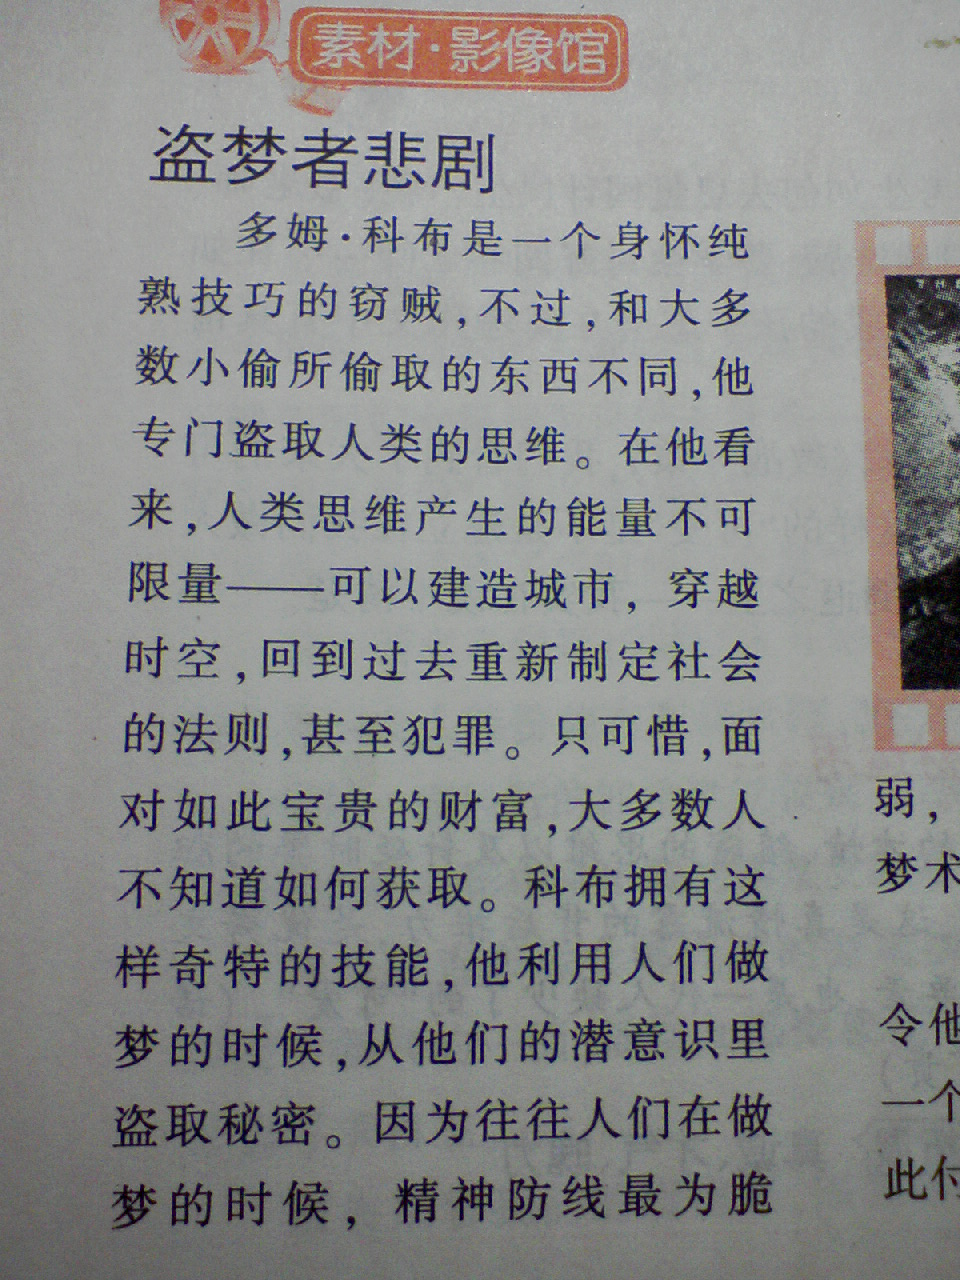 素材·影像馆
盗梦者悲剧
多姆·科布是一个身怀纯
熟技巧的窃贼,不过,和大多
数小偷所偷取的东西不同,他
专门盗取人类的思维。在他看
来,人类思维产生的能量不可
限量——可以建造城市,穿越
时空,回到过去重新制定社会
的法则,甚至犯罪。只可惜,面
对如此宝贵的财富,大多数人
不知道如何获取。科布拥有这
样奇特的技能,他利用人们做
梦的时候,从他们的潜意识里
盗取秘密。因为往往人们在做
梦的时候,精神防线最为脆
弱,
梦术
令他
一个
此付